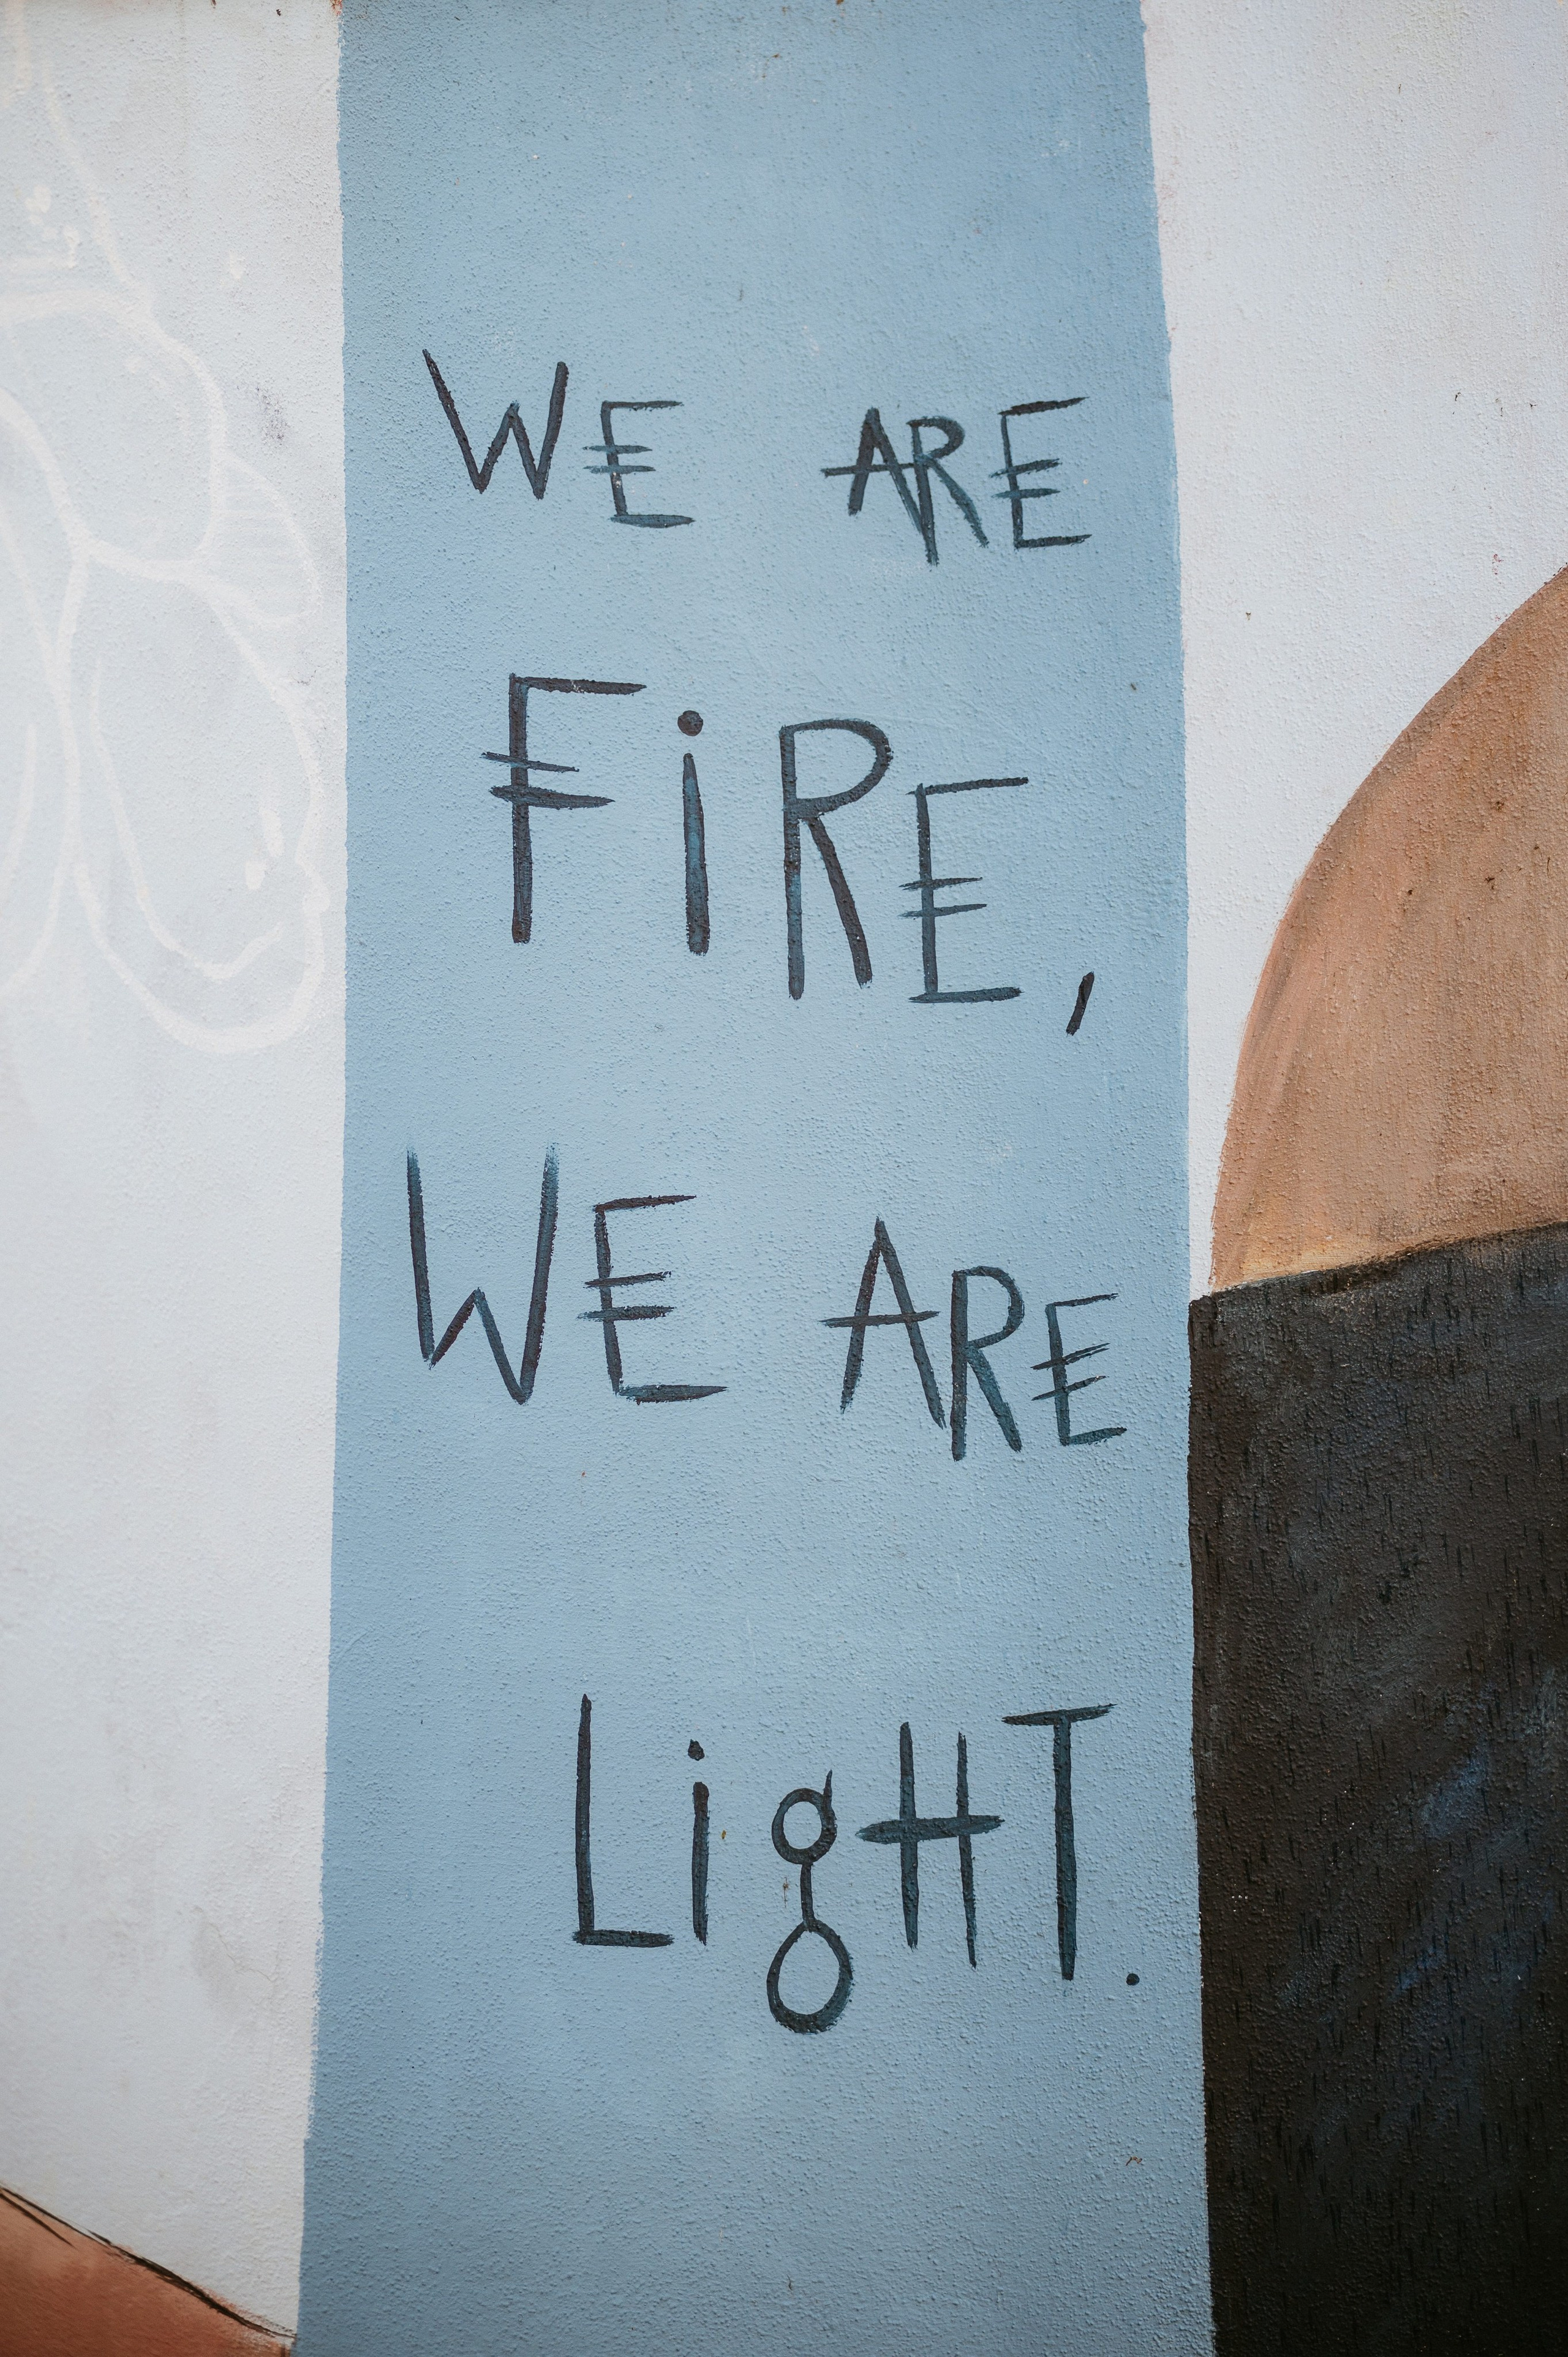 WE ARE
FiRE,
WE ARE
LigHT.